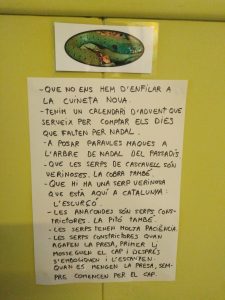 - QUE NO ENS HEM D'ENFILAR A
LA CUINETA NOVA.
- TENIM UN CALENDARI D'ADVENT QUE
SERVEIX PER COMPTAR ELS DIES
QUE FALTEN PER NADAL.
- A POSAR PARAULES MAQUES A
L'ARBRE DE NADAL DEL PASSADÍS
- QUE LES SERPS DE CASCAVELL SÓN
VERINOSES. LA COBRA TAMBÉ.
- QUE HI HA UNA SERP VERINOSA
QUE ESTÀ AQUÍ A CATALUNYA:
L'ESCURÇÓ.
- LES ANACONDES SÓN SERPS CONS-
TRICTORES. LA PITÓ TAMBÉ.
- LES SERPS TENEN MOLTA PACIÈNCIA.
- LES SERPS CONSTRICTORES QUAN
AGAFEN LA PRESA, PRIMER LI
MOSSEGUEN EL CAP I DESPRÉS
S'EMBOLIQUEN I L'ESCANYEN.
QUAN ES MENGEN LA PRESA, SEM-
PRE COMENCEN PER EL CAP.